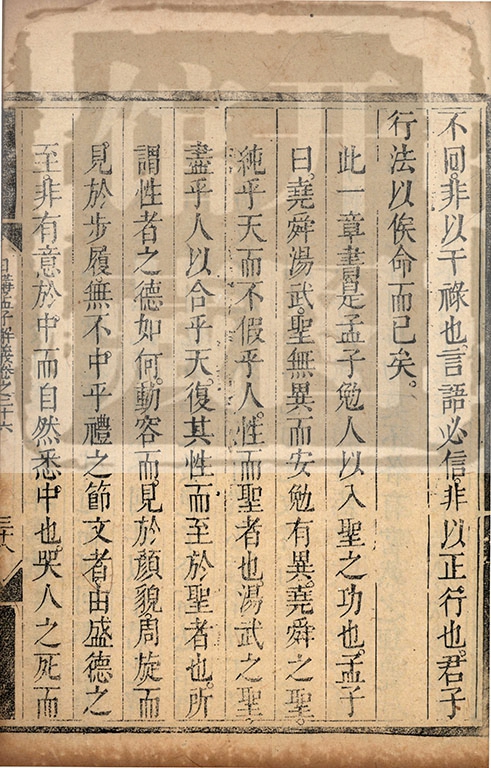 不回。非以干祿也。言語必信。非以正行也。君子
行法以俟命而已矣。
此一章書。是孟子勉人以入聖之功也。孟子
曰。堯舜湯武。聖無異。而安勉有異。堯舜之聖。
純乎天而不假乎人。性而聖者也。湯武之聖。
盡乎人以合乎天。復其性而至於聖者也。所
謂性者之德如何。動容而見於顏貌。周旋而
見於步履。無不中乎禮之節文者。由盛德之
至。非有意於中而自然悉中也。哭人之死而
日講孟子解義卷之二十六
三十八